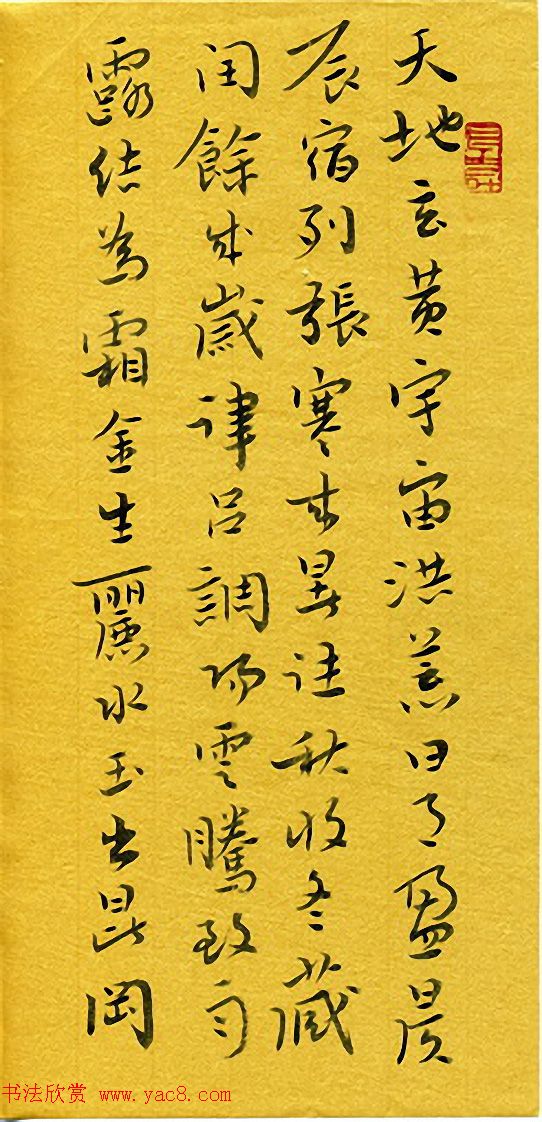 天地玄黄宇宙洪荒日月盈昃
辰宿列張寒来暑往秋收冬藏
闰餘成嵗律吕調陽雲騰致雨
露结為霜金生麗水玉出崑岡
书法欣赏 www.yac8.com